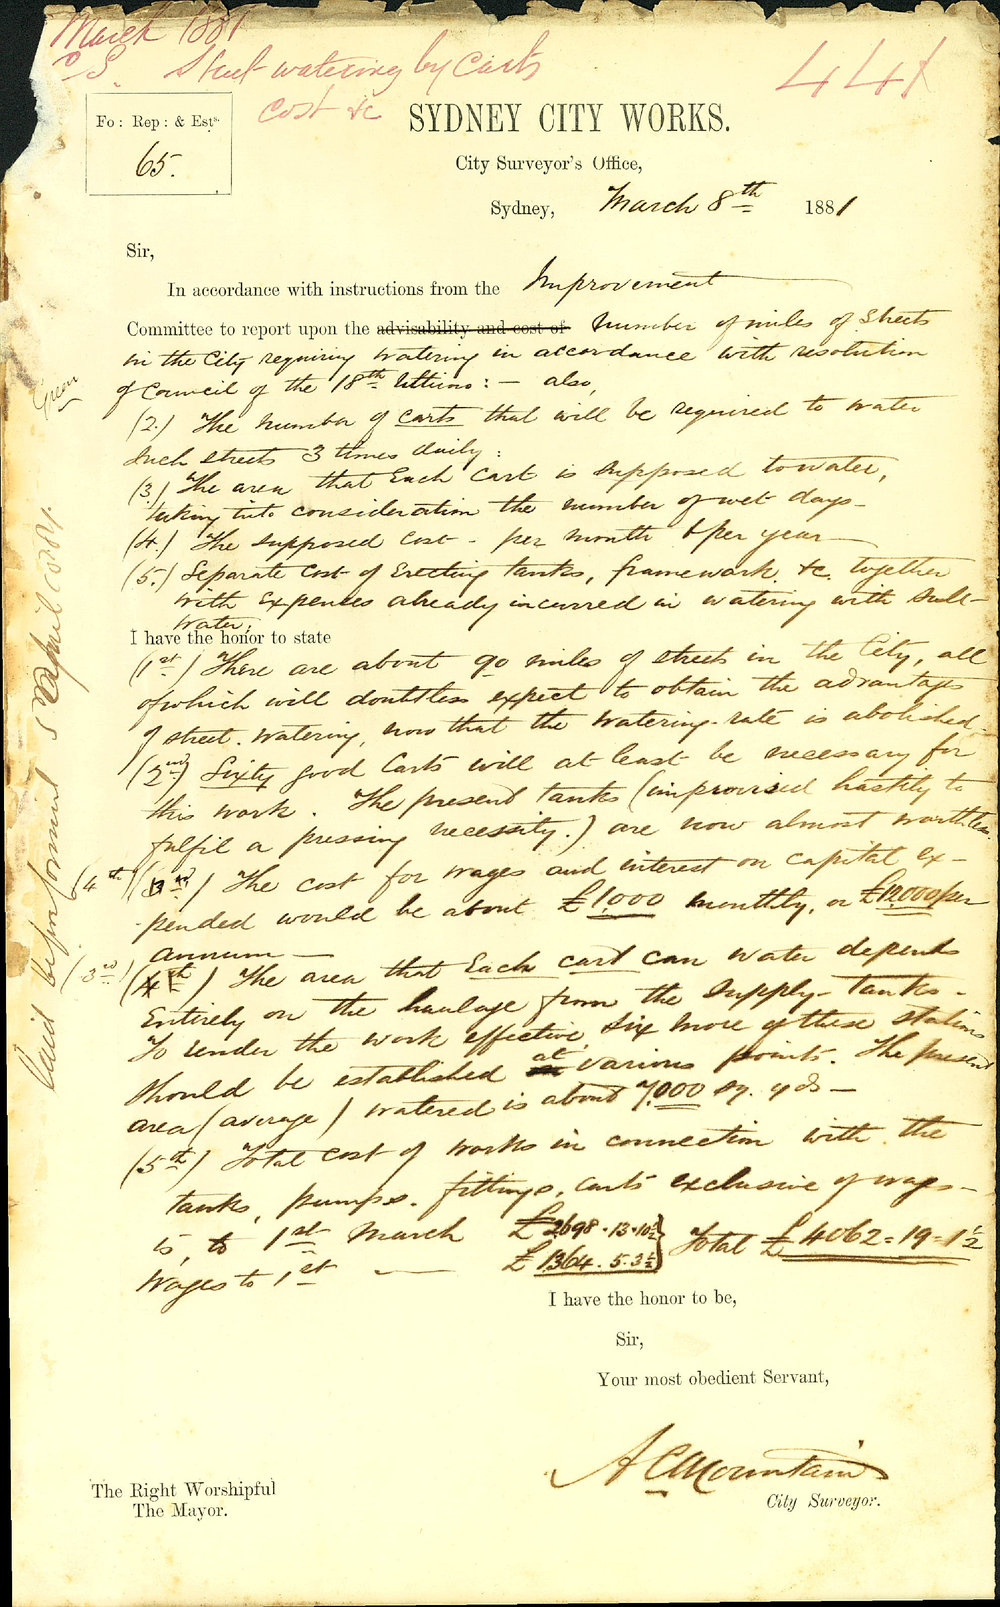 March 1881
Street watering by Carts
441
cost &c
Fo: Rep: & Ests.
65.
SYDNEY CITY WORKS.
City Surveyor's Office,
Sydney, March 8th 1881
Sir,
In accordance with instructions from the Improvement
Committee to report upon the advisability and cost of number of miles of Streets
in the City requiring watering in accordance with resolution
of Council of the 18th Ultimo: — also,
(2.) The number of carts that will be required to water
such streets 3 times daily:
(3.) The area that Each Cart is supposed to water,
taking into consideration the number of wet days—
(4.) The supposed Cost - per month & per year —
(5.) Separate Cost of Erecting tanks, framework &c. together
with Expenses already incurred in watering with Salt-
water;
I have the honor to state
(1st) There are about 90 miles of streets in the City, all
of which will doubtless expect to obtain the advantages
of street watering, now that the watering-rate is abolished—
(2nd) Sixty good Carts will at least be necessary for
this work. The present tanks (improvised hastily to
fulfil a pressing necessity.) are now almost worthless.
(4th) (3rd) The cost for wages and interest on capital ex-
pended would be about £1,000 monthly, or £12,000 per
annum —
(3rd) (4th) The area that Each cart can water depends
Entirely on the haulage from the supply-tanks.
To render the work effective, six more of these stations
should be established at various points. The present
area (average) watered is about 7,000 sq. yds —
(5th) Total cost of works in connection with the
tanks, pumps, fittings, carts exclusive of wages—
is, to 1st March £2698.13.10½ } Total £4062=19=1½
Wages to 1st — £1364.5.3½
I have the honor to be,
Sir,
Your most obedient Servant,
A C Mountain
City Surveyor.
The Right Worshipful
The Mayor.
Green
Laid before Council 5 April